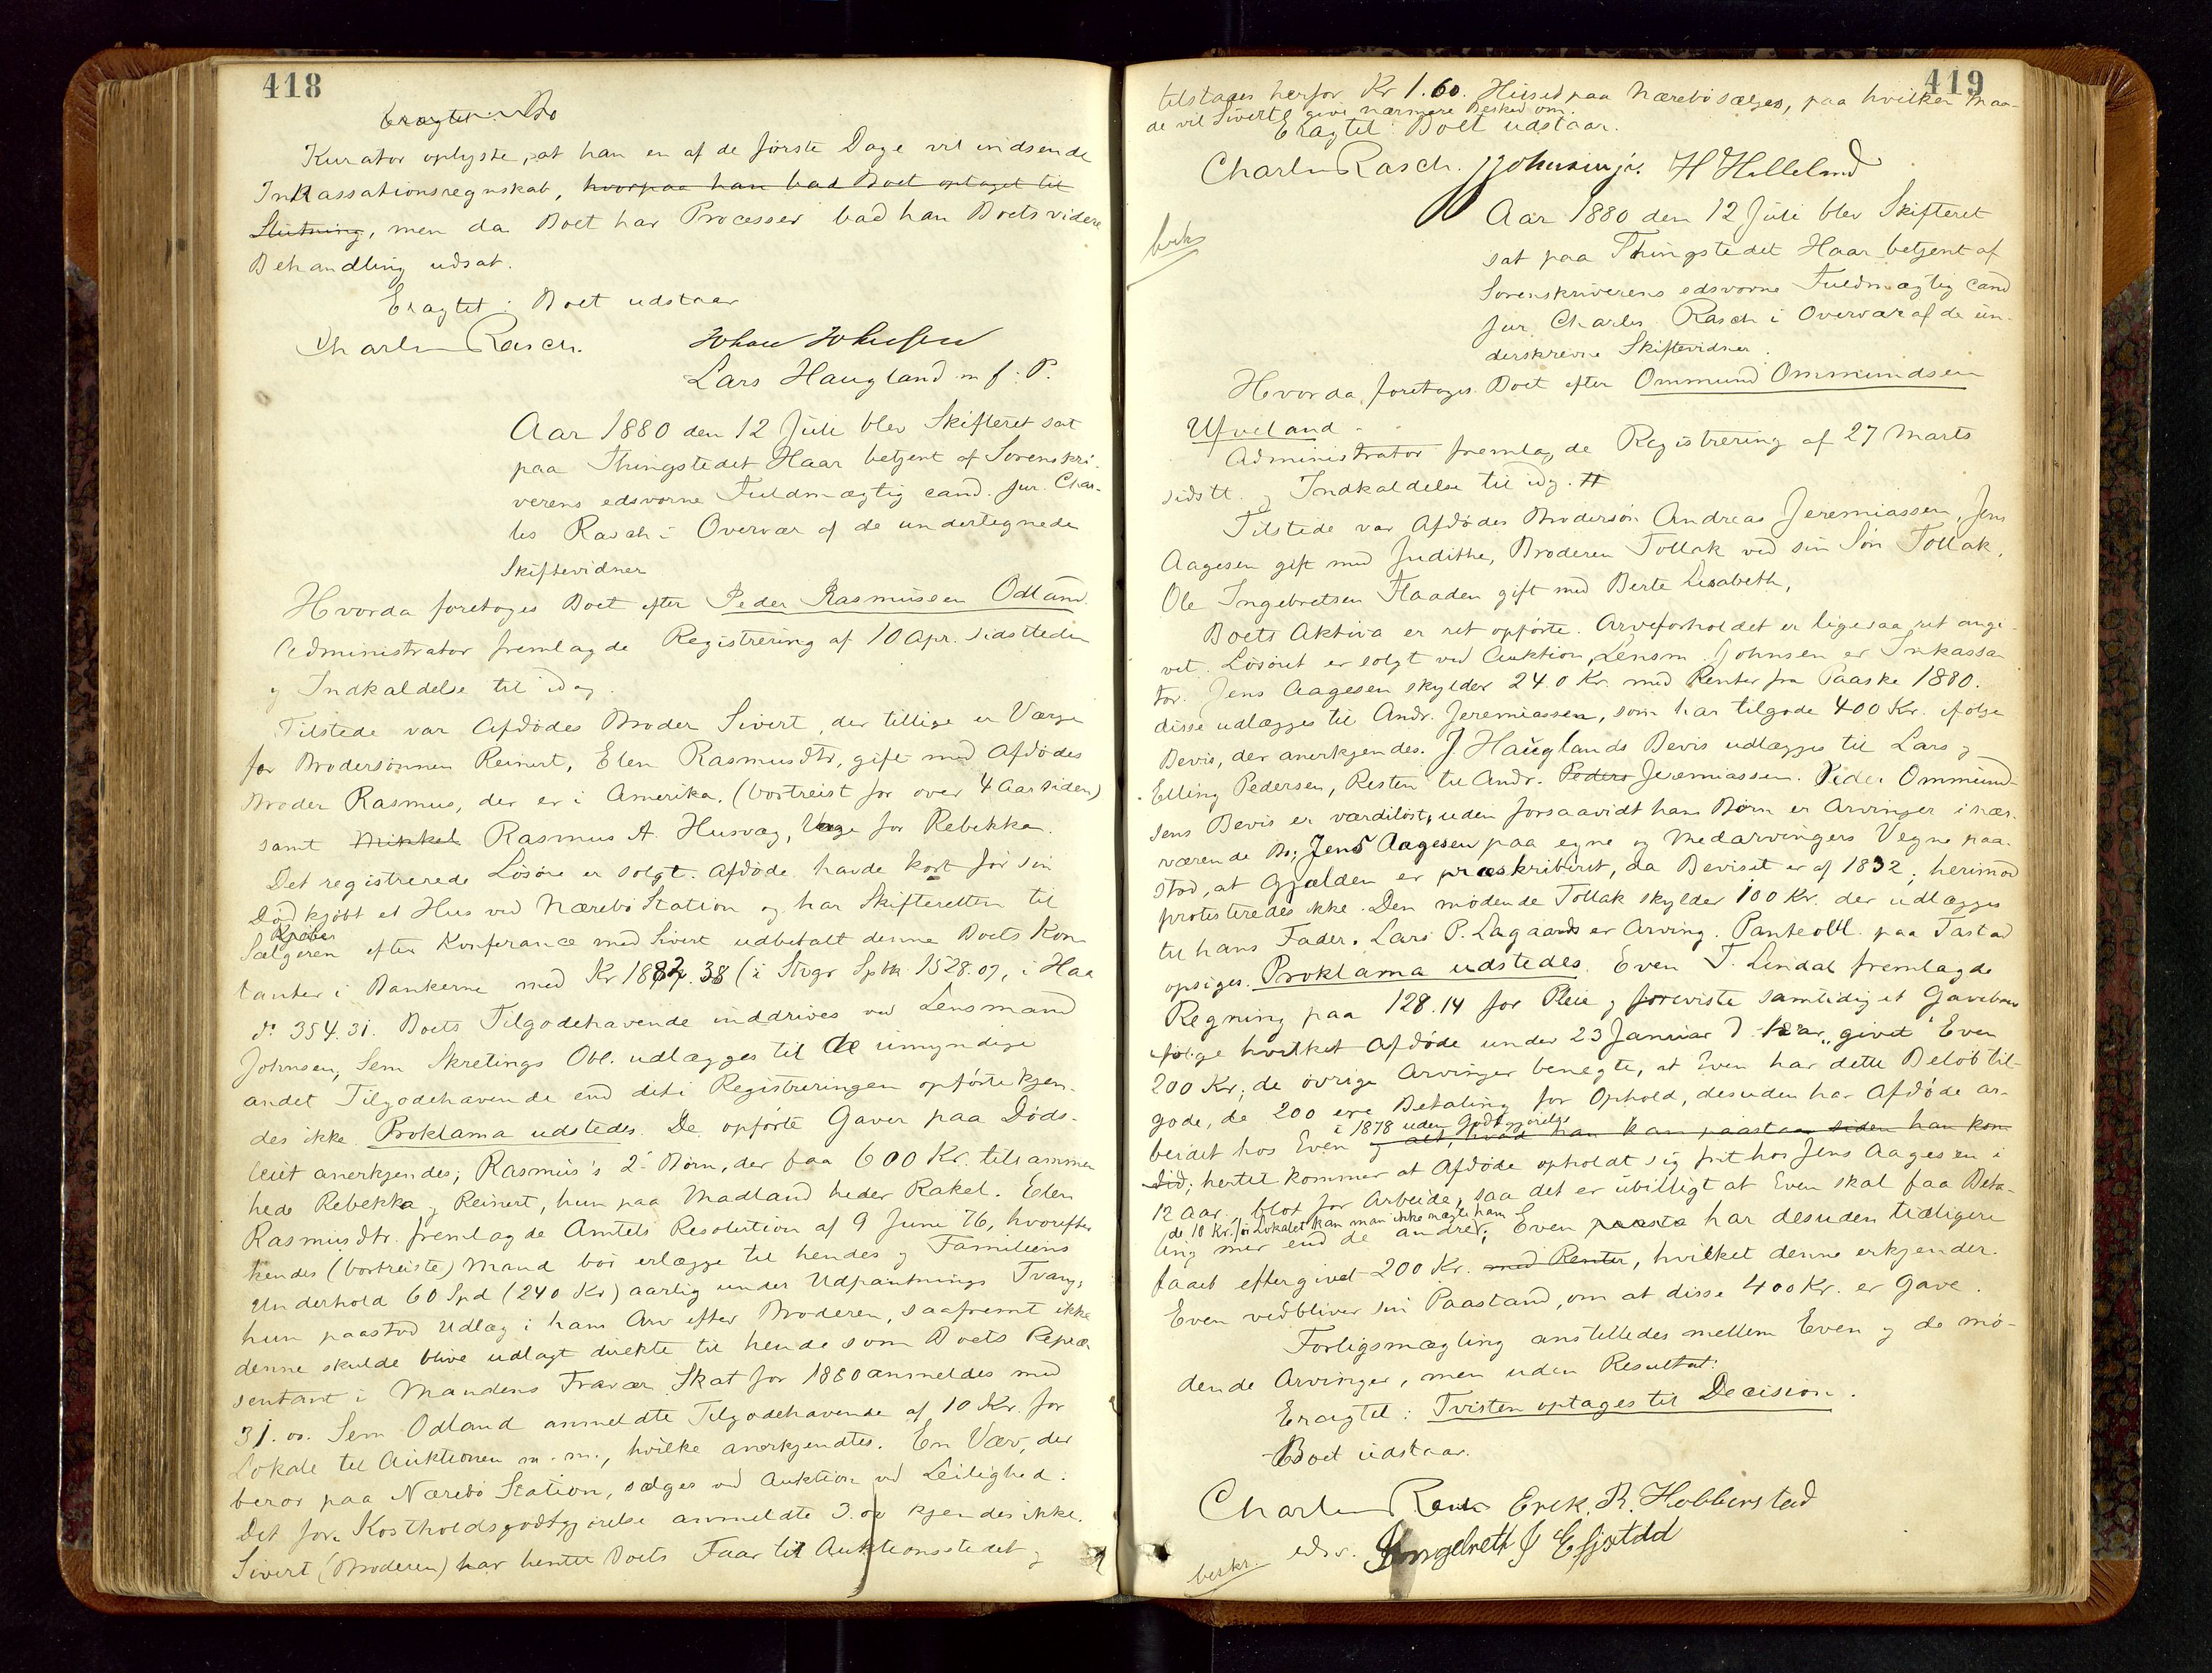 418
Eragtet: Bo
Kurator oplyste, at han en af de første Dage vil indsende
Inkassationsregnskab, hvorpaa han bad Boet optaget til
Slutning, men da Boet har Processer bad han Boets videre
Behandling udsat.
Eragtet: Boet udstaar
Charles Rasch. Johan Johnsen
Lars Haugland m f. P.
Aar 1880 den 12 Juli blev Skifteret sat
paa Thingstedet Haar betjent af Sorenskri-
verens edsvorne Fuldmægtig cand. jur. Char-
les Rasch i Overvær af de undertegnede
Skiftevidner
Hvorda foretoges Boet efter Peder Rasmussen Odland.
Administrator fremlagde Registrering af 10 Apr. sidstleden
og Indkaldelse til idag.
Tilstede var Afdødes Broder Sivert, der tillige er Værge
for Brodersønnen Reinert, Elen Rasmusdtr, gift med Afdødes
Broder Rasmus, der er i Amerika. (bortreist for over 4 Aar siden)
samt Mikkel Rasmus A. Husvæg, Værge for Rebekka.
Det registrerede Løsøre er solgt. Afdøde havde kort før sin
Død kjøbt et Hus ved Nærebø Station og har Skifteretten til
Sælgeren efter Konferance med Sivert udbetalt denne Boets Kon-
tanter i Bankerne med Kr 1882.38 (i Stvgr Spbk 1528.07, i Haa
do 354.31. Boets Tilgodehavende inddrives ved Lensmand
Johnsen, Sem Skretings Obl. udlægges til de umyndige
andet Tilgodehavende end det i Registreringen opførte kjen-
des ikke. Proklama udstedes. De opførte Gaver paa Døds-
leiet anerkjendes; Rasmus's 2 Børn, der faa 600 Kr. tilsammen
hede Rebekka og Reinert, hun paa Madland heder Rakel. Elen
Rasmusdtr. fremlagde Amtets Resolution af 9 Juni 76, hvorefter
hendes (bortreiste) Mand bør erlægge til hendes og Familiens
Underhold 60 Spd (240 Kr) aarlig under Udpantnings Tvang;
hun paastod Udlæg i hans Arv efter Broderen, saafremt ikke
denne skulde blive udlagt direkte til hende som Boets Repræ-
sentant i Mandens Fravær. Skat for 1880 anmeldes med
31.00. Sem Odland anmeldte Tilgodehavende af 10 Kr. for
Lokale til Auktionen m.m., hvilke anerkjendtes. En Væv, der
beror paa Nærebø Station, sælges ved Auktion ved Leilighed.
Det for Kostholdsgodtgjørelse anmeldte 3.00 kjendes ikke.
Sivert (Broderen) har hentet Boets Faar til Auktionsstedet og
419
tilstaaes herfor Kr 1.60. Huset paa Nærebø sælges, paa hvilken Maa-
de vil Sivert give nærmere Besked om.
Eragtet: Boet udstaar.
Charles Rasch. J Johnsen jr. H Helleland
beskr
Aar 1880 den 12 Juli blev Skifteret
sat paa Thingstedet Haar betjent af
Sorenskriverens edsvorne Fuldmægtig cand
jur. Charles Rasch i Overvær af de un-
derskrevne Skiftevidner.
Hvorda foretoges Boet efter Ommund Ommundsen
Ufveland.
Administrator fremlagde Registrering af 27 Marts
sidstl. og Indkaldelse til idag.
Tilstede var Afdødes Brodersøn Andreas Jeremiassen, Jens
Aagesen gift med Judithe, Broderen Tollak ved sin Søn Tollak,
Ole Ingebretsen Haaden gift med Berte Lisabeth,
Boets Aktiva er ret opførte. Arveforholdet er ligesaa ret angi-
vet. Løsøret er solgt ved Auktion, Lensm. Johnsen er Inkassa-
tor. Jens Aagesen skylder 240 Kr. med Renter fra Paaske 1880.
disse udlægges til Andr. Jeremiassen, som har tilgode 400 Kr. ifølge
Bevis, der anerkjendes. J. Hauglands Bevis udlægges til Lars og
Elling Pedersen, Resten til Andr. Peders Jeremiassen. Peder Ommund-
sens Bevis er værdiløst, uden forsaavidt hans Børn er Arvinger i nær-
værende Bo; Jens Aagesen paa egne og Medarvingers Vegne paa-
stod, at Gjælden er præskriberet, da Beviset er af 1832; herimod
protesteredes ikke. Den mødende Tollak skylder 100 Kr. der udlægges
til hans Fader. Lars P. Lagaards er Arving. Panteobl. paa Tastad
opsiges. Proklama udstedes. Even T. Lindal fremlagde
Regning paa 128.14 for Pleie og foreviste samtidig et Gavebrev
ifølge hvilket Afdøde under 23 Januar d. Aar „givet" Even
200 Kr; de øvrige Arvinger benegte, at Even har dette Beløb til-
gode, de 200 ere Betaling for Ophold, desuden har Afdøde ar-
beidet hos Even i 1878 uden Godtgjørelse og alt, hvad han kan paastaa siden han kom
did; hertil kommer at Afdøde opholdt sig frit hos Jens Aagesen i
12 Aar, blot for Arbeide, saa det er ubilligt at Even skal faa Beta-
ling mer end de andre; de 10 Kr. for Lokalet kan man ikke nægte ham. Even paasta har desuden tidligere
faaet eftergivet 200 Kr. med Renter, hvilket denne erkjender.
Even vedbliver sin Paastand, om at disse 400 Kr. er Gave.
Forligsmægling anstilledes mellem Even og de mø-
dende Arvinger, men uden Resultat.
Eragtet: Tvisten optages til Decision.
Boet udstaar.
Charles Rasch Erik R. Hobberstad
edsv.
beskr.